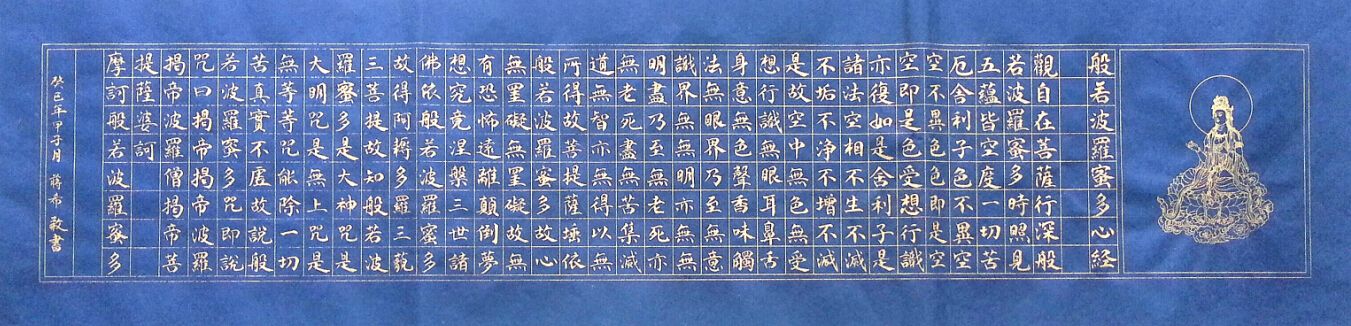 般若波羅蜜多心経
觀自在菩薩行深般
若波羅蜜多時照見
五蘊皆空度一切苦
厄舍利子色不異空
空不異色色即是空
空即是色受想行識
亦復如是舍利子是
諸法空相不生不滅
不垢不淨不增不減
是故空中無色無受
想行識無眼耳鼻舌
身意無色聲香味觸
法無眼界乃至無意
識界無無明亦無無
明盡乃至無老死亦
無老死盡無苦集滅
道無智亦無得以無
所得故菩提薩埵依
般若波羅蜜多故心
無罣礙無罣礙故無
有恐怖遠離顛倒夢
想究竟涅槃三世諸
佛依般若波羅蜜多
故得阿耨多羅三藐
三菩提故知般若波
羅蜜多是大神咒是
大明咒是無上咒是
無等等咒能除一切
苦真實不虛故說般
若波羅蜜多咒即說
咒曰揭帝揭帝波羅
揭帝波羅僧揭帝菩
提薩婆訶
摩訶般若波羅蜜多
癸巳年甲子月 蔣希 敬書